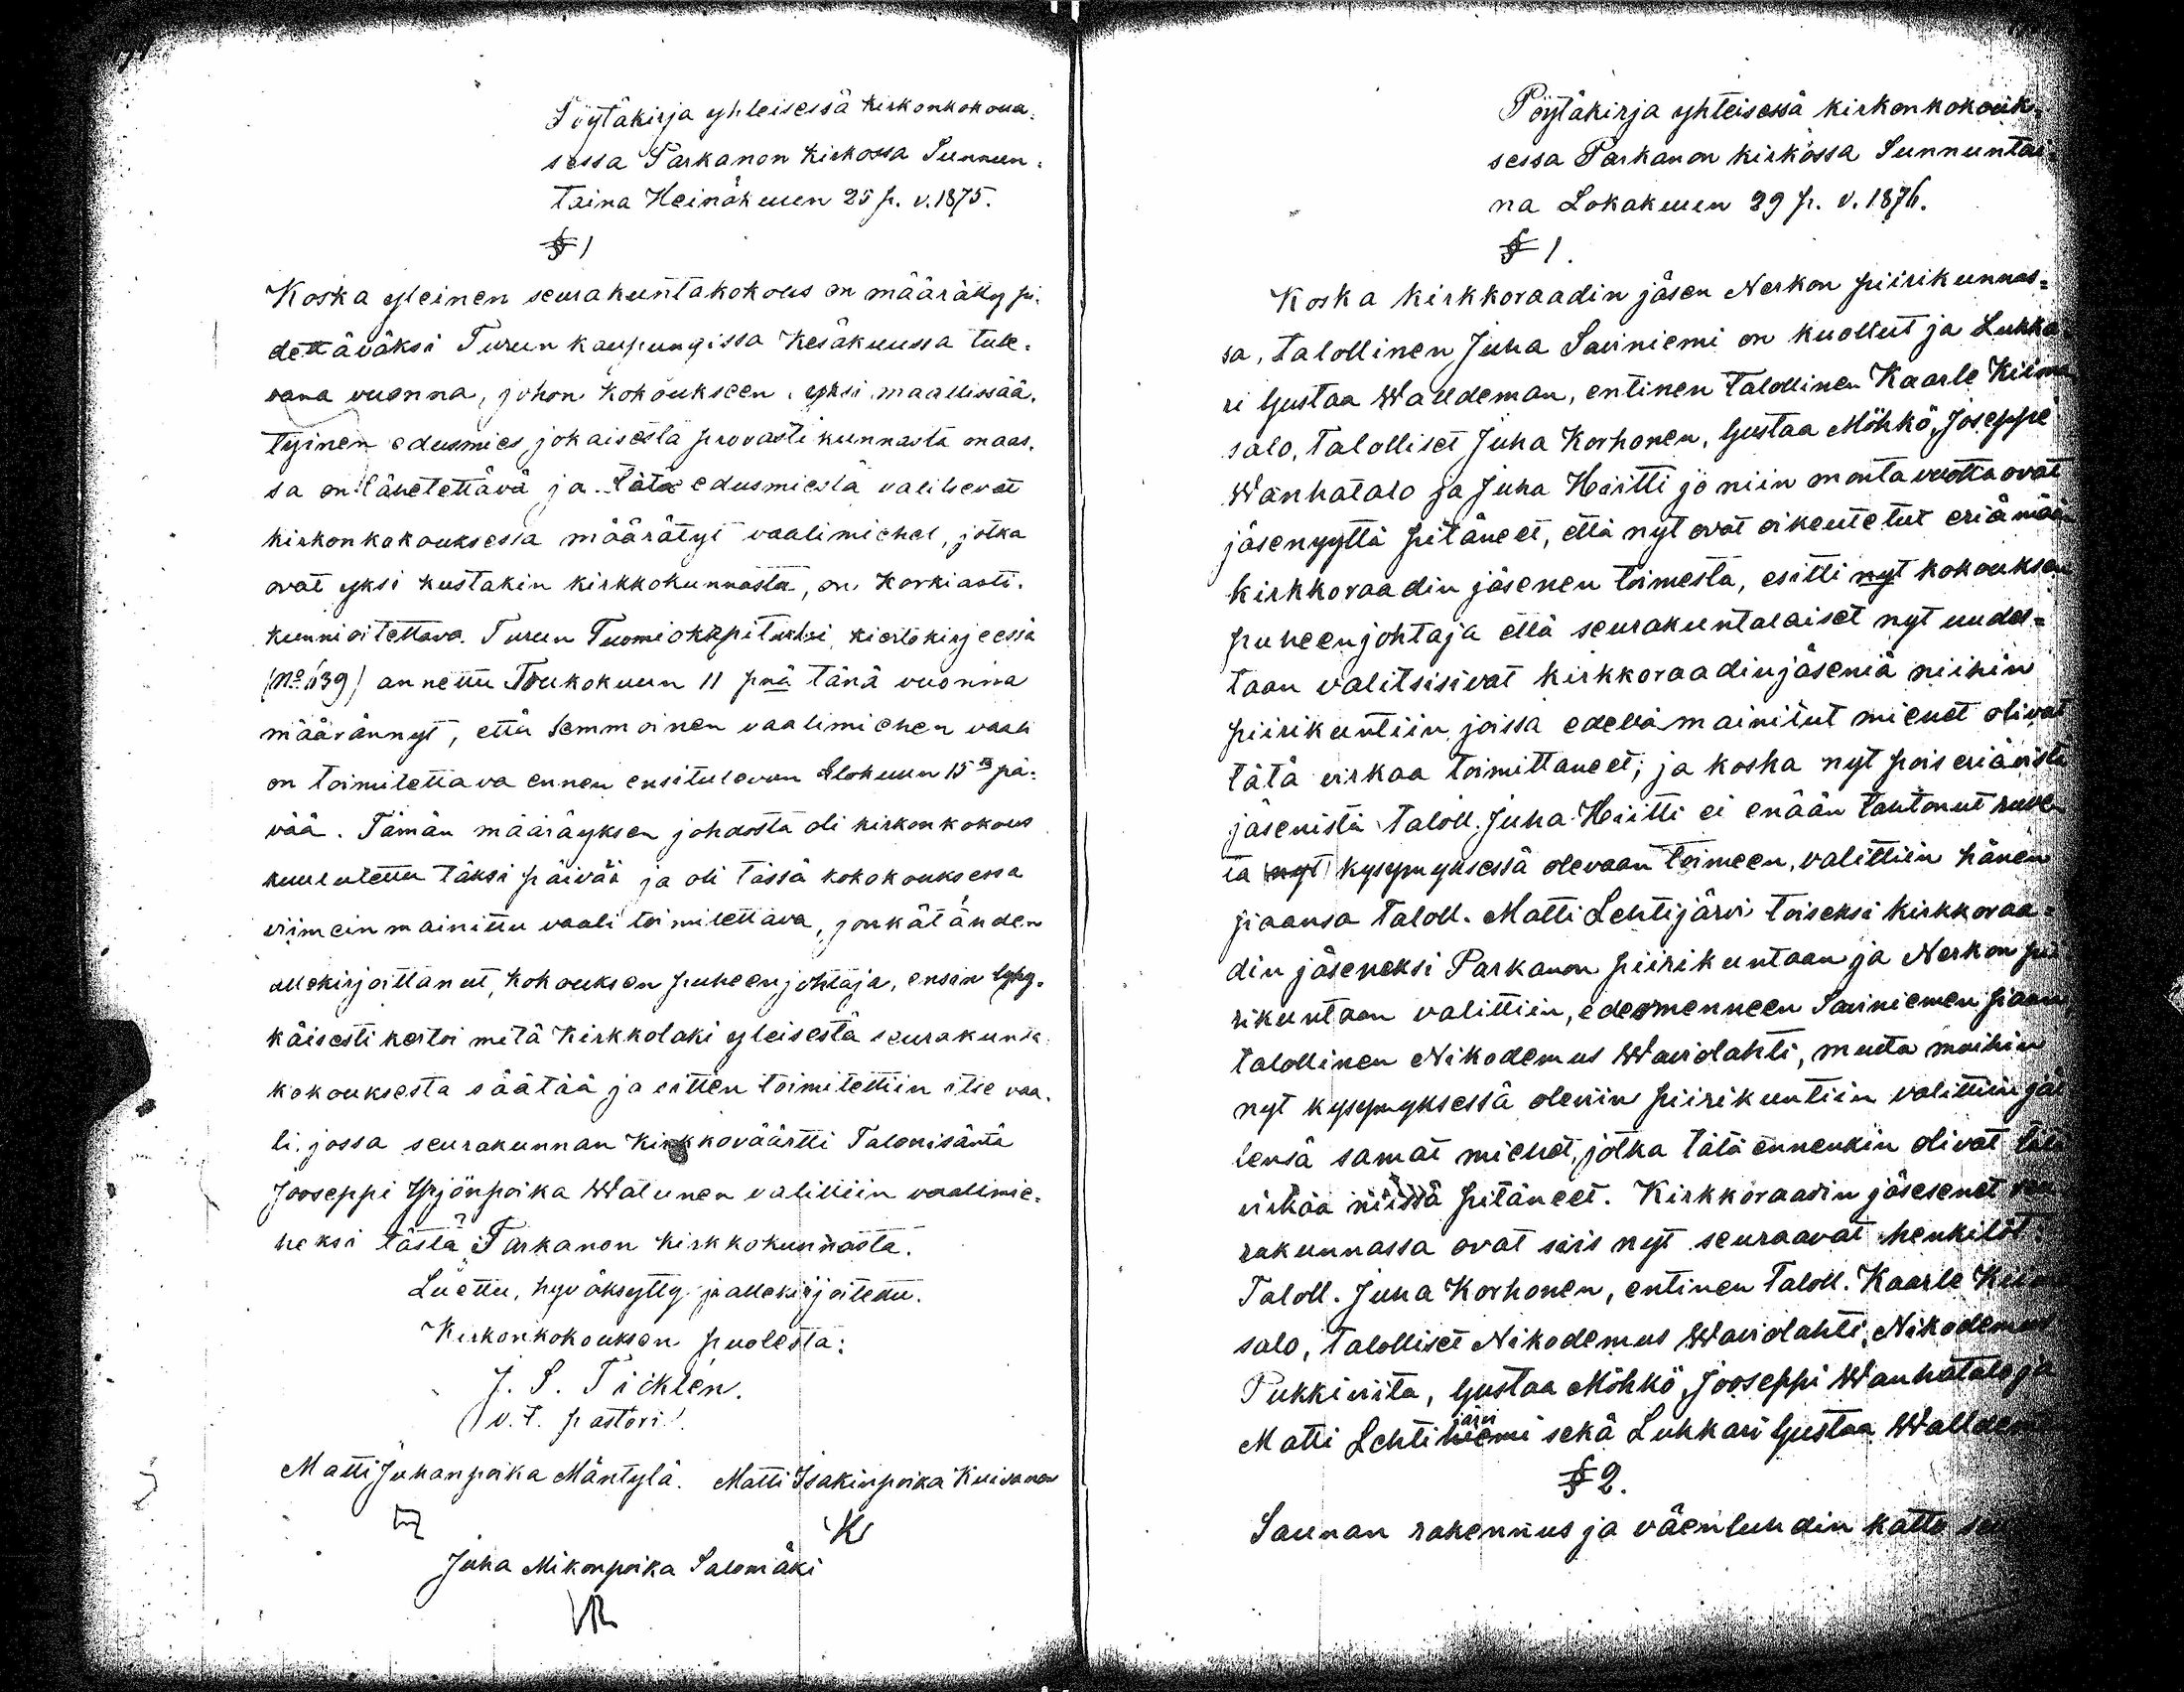 Pöytäkirja yhteisessä kirkonkokouk=
sessa Parkanon kirkossa Sunnun=
taina Heinäkuun 25 p. v. 1875.
§ 1
Koska yleinen seurakuntakokous on määrätty pi=
dettäväksi Turun kaupungissa Kesäkuussa tule=
vana vuonna, johon kokoukseen yksi maallissää=
tyinen edusmies jokaisesta provastikunnasta maas=
sa on lähetettävä ja tätä edusmiestä valitsevat
kirkonkokouksessa määrätyt vaalimiehet, jotka
ovat yksi kustakin kirkkokunnasta, on Korkiasti=
kunnioitettava Turun Tuomiokapituli kiertokirjeessä
(No 639) annettu Toukokuun 11 pnä tänä vuonna
määrännyt, että semmoinen vaalimiehen vaali
on toimitettava ennen ensitulevan Elokuun 15 pä=
vää. Tämän määräyksen johdosta oli kirkonkokous
kuulutettu täksi päivää ja oli tässä kokokouksessa
viimeinmainittu vaali toimitettava, jonkatähden
allekirjoittanut, kokouksen puheenjohtaja, ensin lyhy=
käisesti kertoi mitä Kirkkolaki yleisestä seurakunta
kokouksesta säätää ja sitten toimitettiin itse vaa=
li, jossa seurakunnan Kirkkoväärtti Talonisäntä
Jooseppi Yrjönpoika Watunen valittiin vaalimie=
heksi tästä Parkanon kirkkokunnasta.
Luettu, hyväksytty ja allekirjoitettu.
Kirkonkokouksen puolesta:
J. S. Ticklén.
v.t. pastori.
Matti Juhanpoika Mäntylä. Matti Isakinpoika Kuivanen
K
Juha Mikonpoika Salomäki
Pöytäkirja yhteisessä kirkonkokouk=
sessa Parkanon kirkossa Sunnuntai=
na Lokakuun 29 p. v. 1876.
§ 1.
Koska kirkkoraadin jäsen Nerkon piirikunnas=
sa, talollinen Juha Sauniemi on kuollut ja Lukka
ri Gustaa Walldeman, entinen talollinen Kaarle Kiima
salo, talolliset Juha Korhonen, Gustaa Möhkö, Joseppe
Wanhatalo ja Juha Häitti jo niin monta vuotta ovat
jäsenyyttä pitäneet, että nyt ovat oikeutetut eriämään
kirkkoraadin jäsenen toimesta, esitti nyt kokouksen
puheenjohtaja että seurakuntalaiset nyt uudes=
taan valitsisivat kirkkoraadinjäseniä niihin
piirikuntiin, joissa edellämainitut miehet olivat
tätä virkaa toimittaneet; ja koska nyt pois eriävistä
jäsenistä taloll. Juha Häitti ei enään tahtonut ruve
ta nyt kysymyksessä olevaan toimeen, valittiin hänen
siaansa Taloll. Matti Lehtijärvi toiseksi kirkkoraa=
din jäseneksi Parkanon piirikuntaan ja Nerkon pii
rikuntaan valittiin, edesmenneen Sauniemen siaan
talollinen Nikodemus Waviolahti, mutta muihin
nyt kysymyksessä oleviin piirikuntiin valittiin jäl
lensä samat miehet, jotka tätä ennenkin olivat
virkaa niissä pitäneet. Kirkkoraadin jäsesenet seu
rakunnassa ovat siis nyt seuraavat henkilöt:
Taloll. Juha Korhonen, entinen Taloll. Kaarle Kiima
salo, talolliset Nikodemus Waviolahti, Nikodemus
Pukkiviita, Gustaa Möhkö, Jooseppi Wanhatalo ja
Matti Lehtijärvi sekä Lukkari Gustaa Walldem
§ 2.
Saunan rakennus ja väentuvdin katto